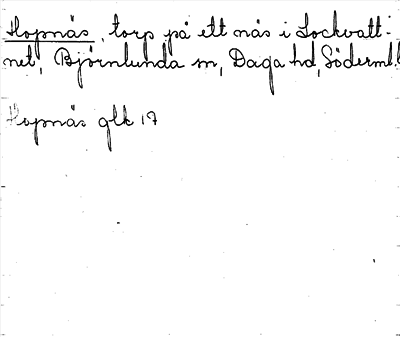 Hopnäs, torp på ett näs i Lockvatt-
net, Björnlunda sn, Daga hd, Söderml.
Hopnäs glk 17